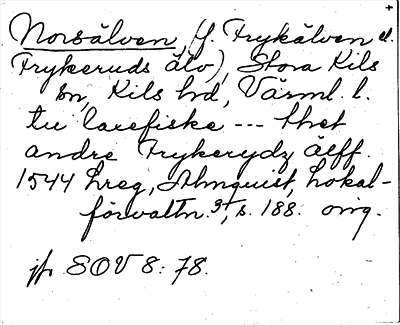 Norsälven (f. Frykälven el.
Frykeruds älv), Stora Kils
sn, Kils hd, Värml. l.
tu laxefiske --- thet
andre Frykerydz älff.
1544 hreg, Almquist, Lokal-
förvaltn. 3¹, s. 188. orig.
jfr SOV 8: 78.